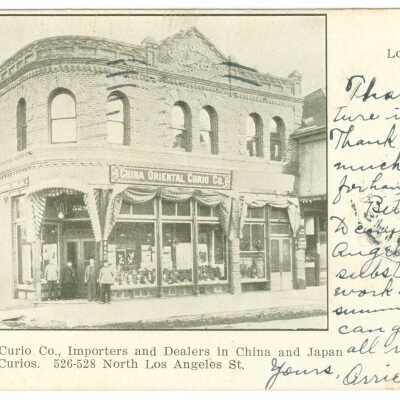 CHINA ORIENTAL CURIO CO.
Curio Co., Importers and Dealers in China and Japan
Curios. 526-528 North Los Angeles St.
Lo
Tha
ture i
Thank
much
for ha
Bet
D
Angel
subst
work
summ
can g
all r
Yours,
Arrie